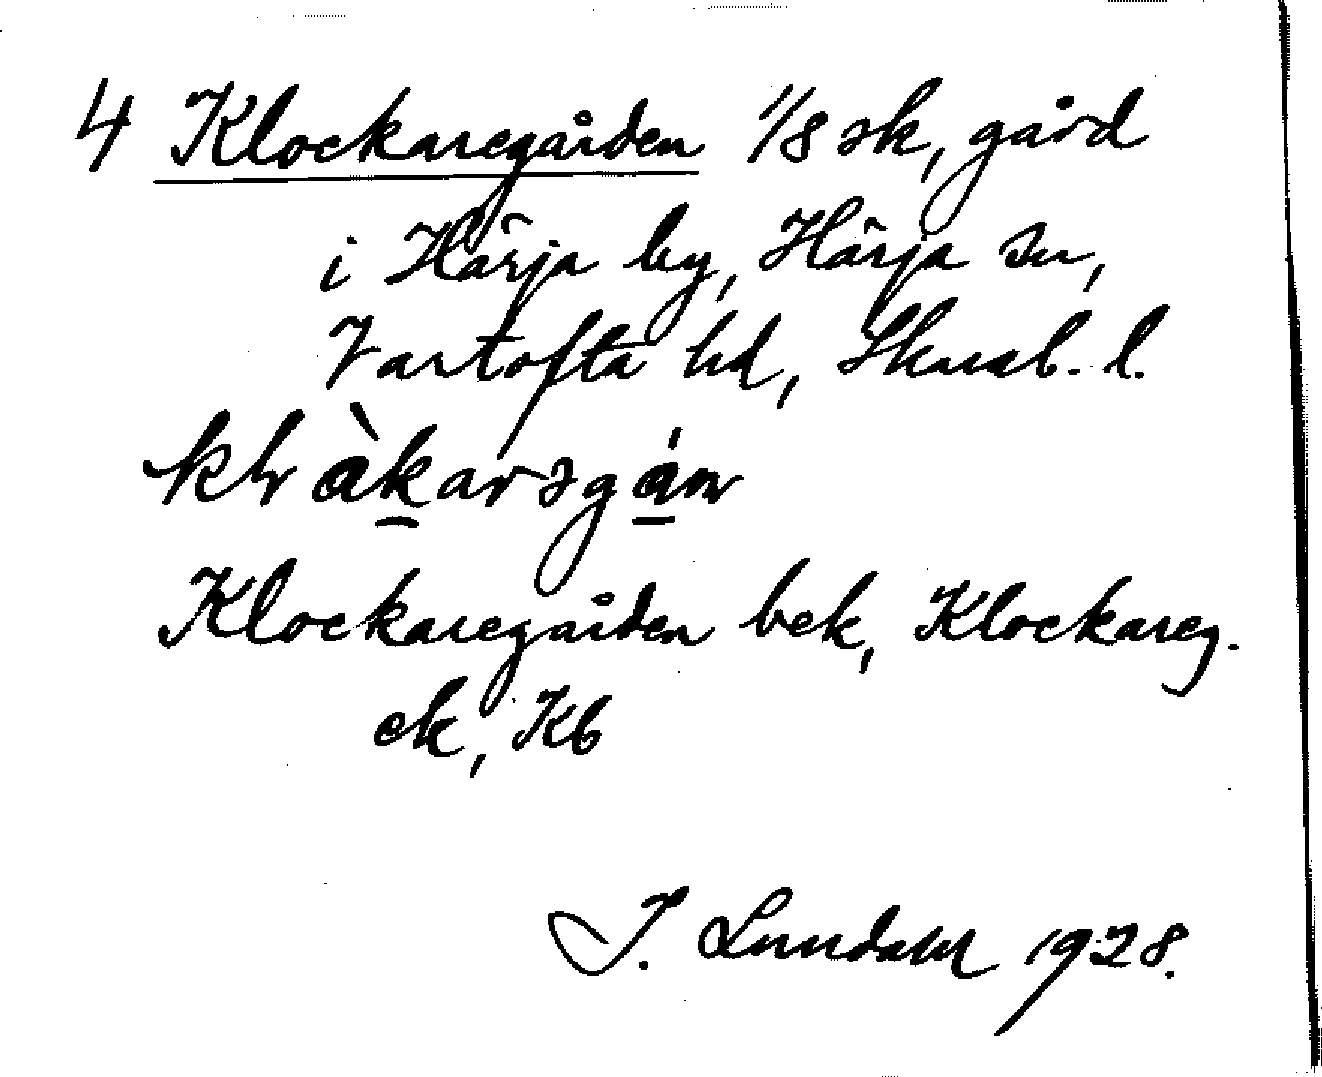 4 Klockaregården 1/8 sk, gård
i Härja by, Härja sn,
Vartofta hd, Skarab. l.
Klockaregården bek, Klockareg.
ek, Kb
I. Lundahl 1928.